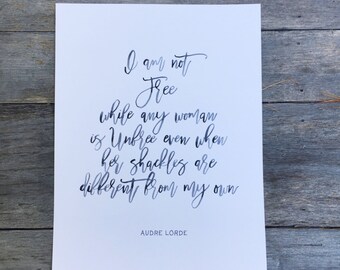 I am not
Free
while any woman
is Unfree even when
her shackles are
different from my own
AUDRE LORDE